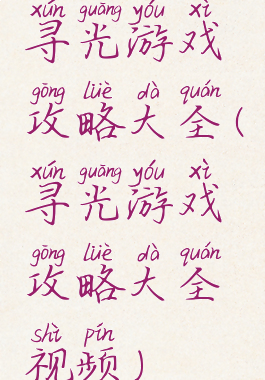 xún guāng yóu xì
寻光游戏
gōng lüè dà quán
攻略大全(
xún guāng yóu xì
寻光游戏
gōng lüè dà quán
攻略大全
shì pín
视频)